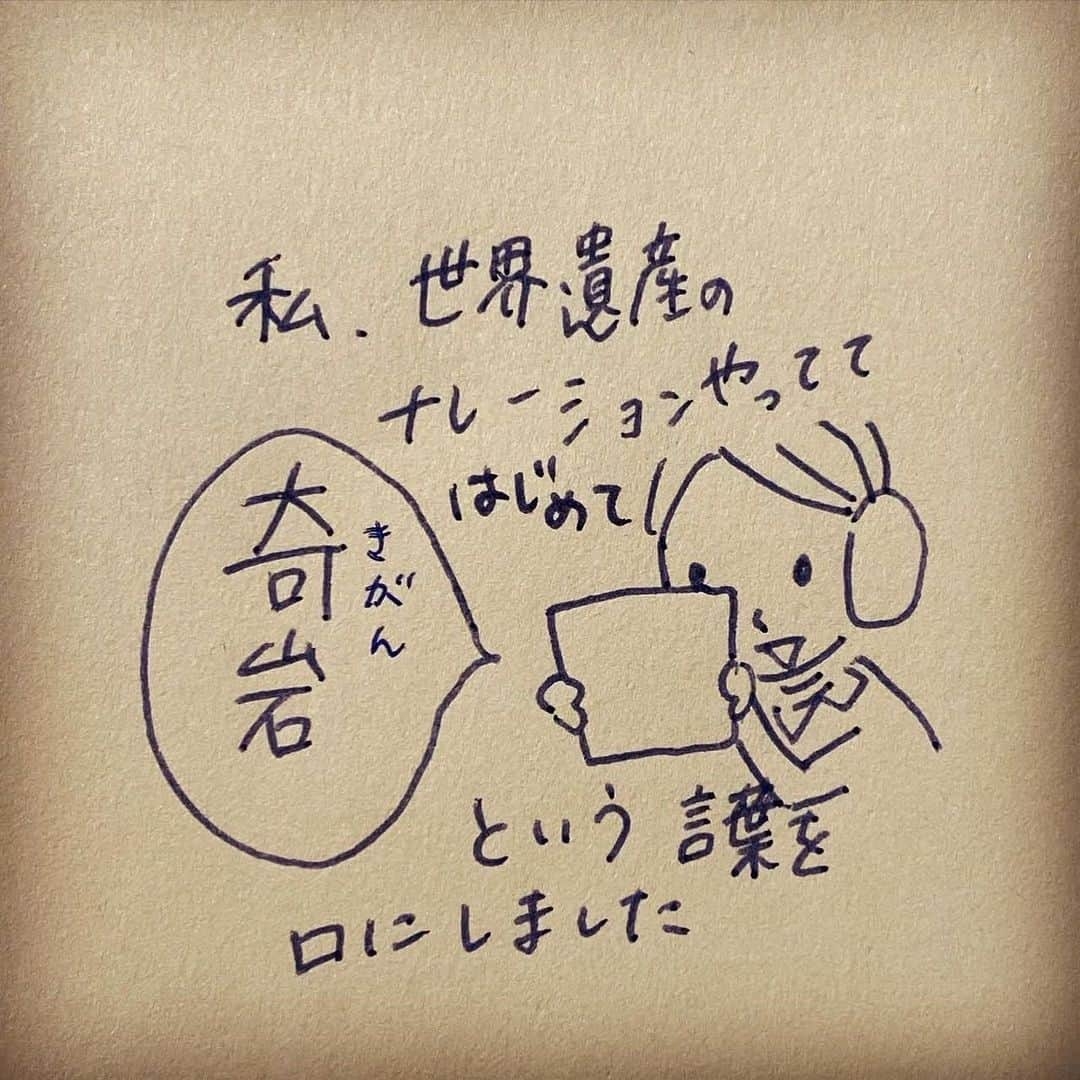 私、世界遺産の
ナレーションやってて
はじめて
奇岩
きがん
という言葉を
口にしました